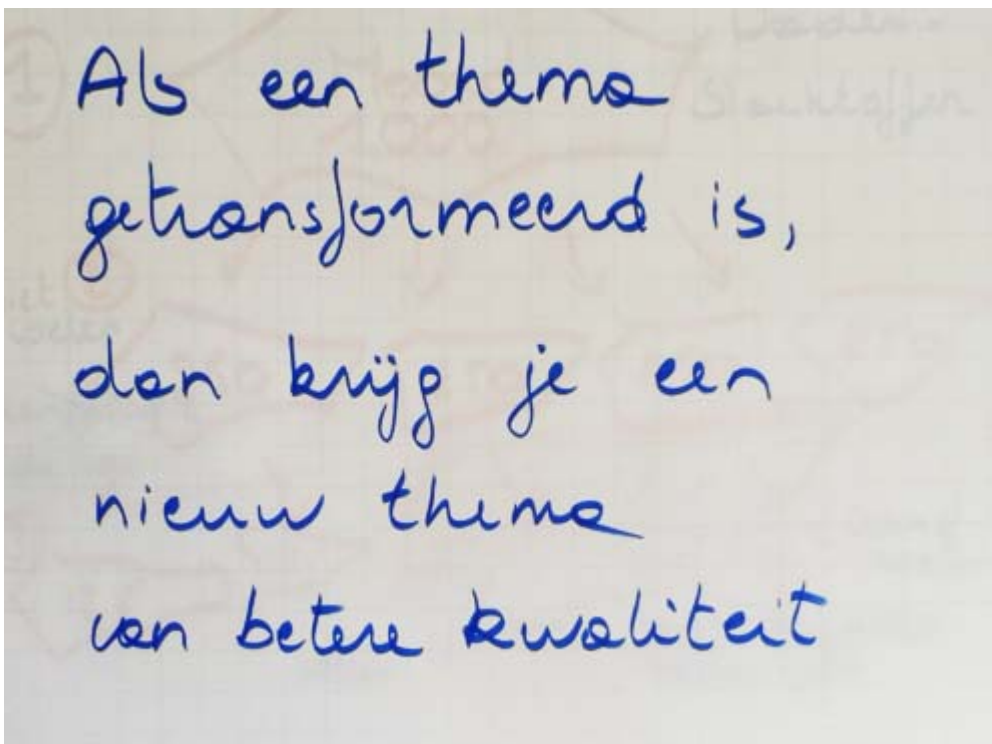 Als een thema
getransformeerd is,
dan krijg je een
nieuw thema
van betere kwaliteit